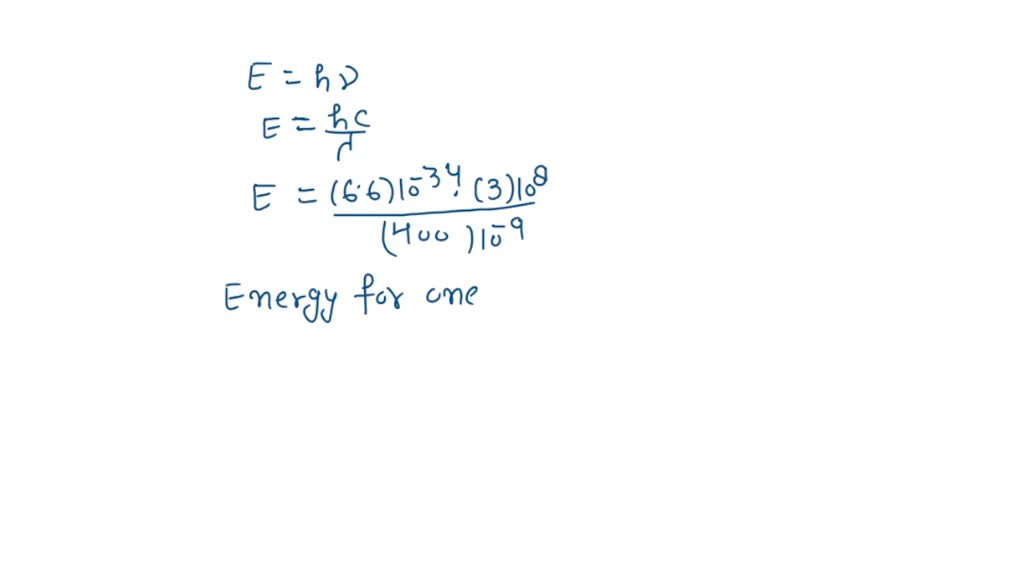 E = hν
E = hc/λ
E = (6.6)10^-34 . (3)10^8 / (400)10^-9
Energy for one